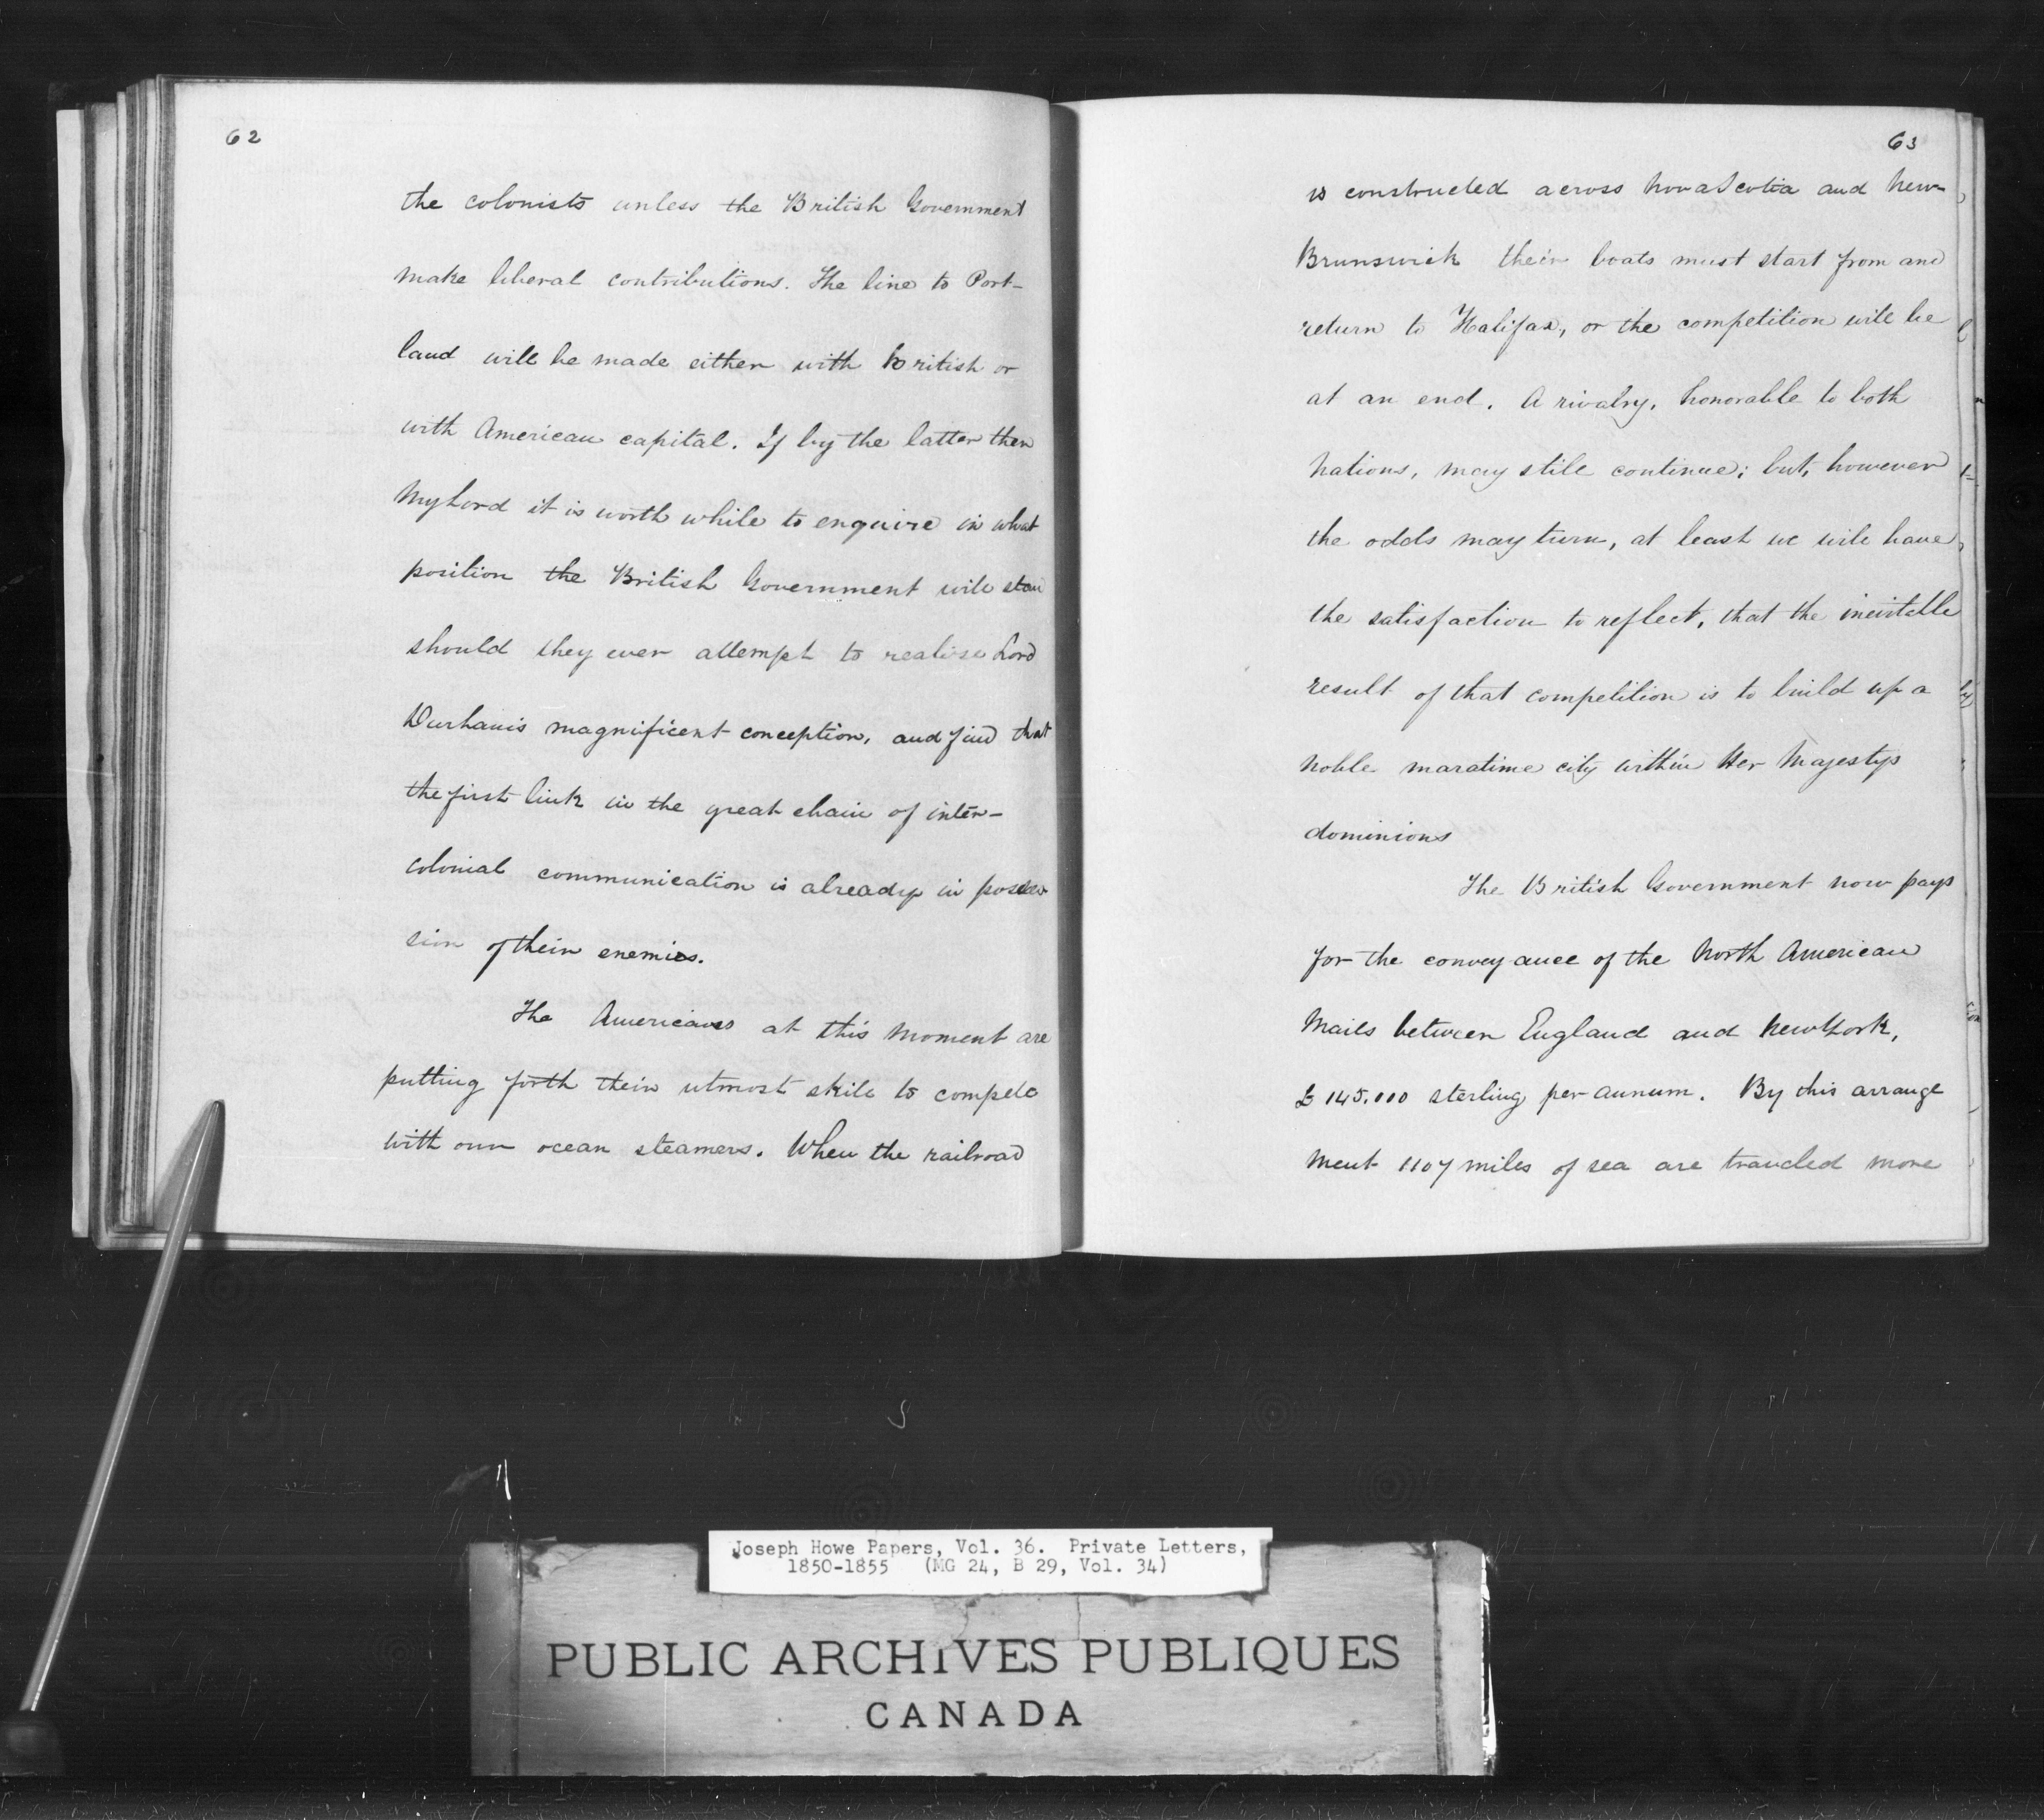 62
the colonists unless the British Government
make liberal contributions. The line to Port-
land will be made either with British or
with American capital. If by the latter then
My Lord it is worth while to enquire in what
position the British Government will stan
should they ever attempt to realise Lord
Durham's magnificent conception, and find that
the first link in the great chain of inter-
colonial communication is already in posses
sion of their enemies.
The Americans at this moment are
putting forth their utmost skill to compete
with our ocean steamers. When the railroad
63
is constructed across Nova Scotia and New-
Brunswick their boats must start from and
return to Halifax, or the competition will be
at an end. A rivalry, honorable to both
Nations, may still continue; but, however
the odds may turn, at least we will have
the satisfaction to reflect, that the inevitable
result of that competition is to build up a
noble maratime city within Her Majestys
dominions
The British Government now pays
for the conveyance of the North American
Mails between England and New York,
£145.000 sterling per annum. By this arrange
ment 1107 miles of sea are traveled more
Joseph Howe Papers, Vol. 36. Private Letters,
1850-1855 (MG 24, B 29, Vol. 34)
PUBLIC ARCHIVES PUBLIQUES
CANADA